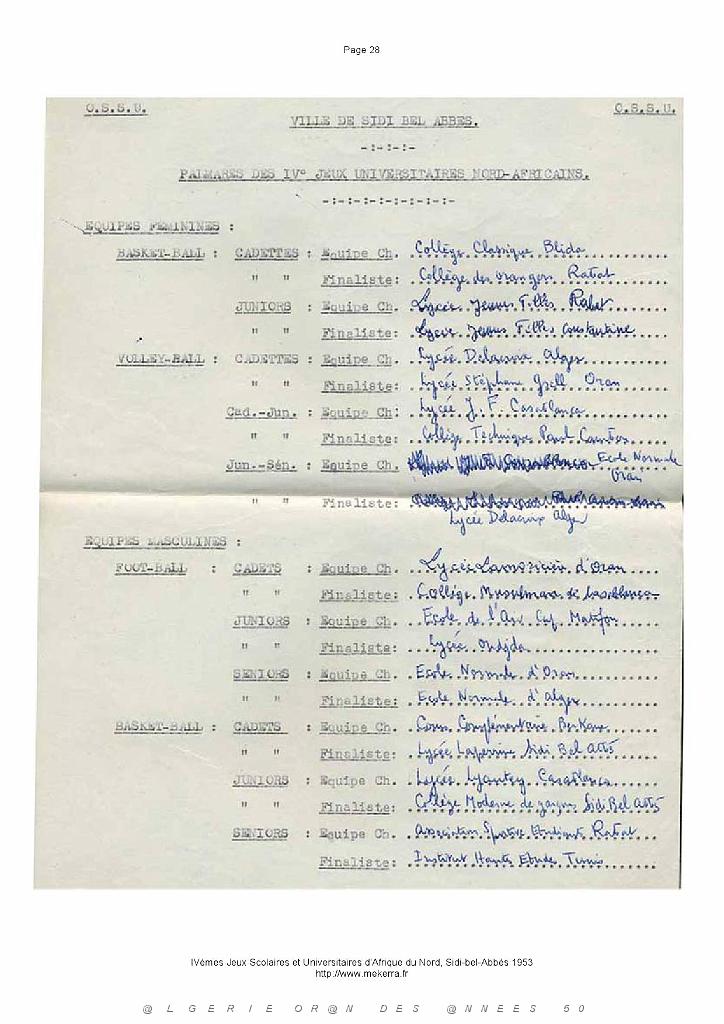 Page 28
O.S.S.U. O.S.S.U.
VILLE DE SIDI BEL ABBES.
-:-:-:-
PALMARES DES IV° JEUX UNIVERSITAIRES NORD-AFRICAINS.
-:-:-:-:-:-:-:-:-
EQUIPES FEMININES :
BASKET-BALL : CADETTES : Equipe Ch. Collège Classique Blida
" " Finaliste: Collège des Orangers Rabat
JUNIORS : Equipe Ch. Lycée Jeunes Filles Rabat
" " Finaliste: Lycée Jeunes Filles Constantine
VOLLEY-BALL : CADETTES : Equipe Ch. Lycée Delacroix Alger
" " Finaliste: Lycée Stéphane Gsell Oran
Cad.-Jun. : Equipe Ch: Lycée J.F. Casablanca
" " Finaliste: Collège Technique Paul
Jun.-Sén. : Equipe Ch. Ecole Normale
Oran
" " Finaliste:
Lycée Delacroix Alger
EQUIPES MASCULINES :
FOOT-BALL : CADETS : Equipe Ch. Lycée Lamoricière d'Oran
" " Finaliste: Collège Musulman de Casablanca
JUNIORS : Equipe Ch. Ecole de l'Air Cap Matifou
" " Finaliste: Lycée Oudjda
SENIORS : Equipe Ch. Ecole Normale d'Oran
" " Finaliste: Ecole Normale d'Alger
BASKET-BALL : CADETS : Equipe Ch. Cours Complémentaire Berkane
" " Finaliste: Lycée Laperrine Sidi Bel Abbès
JUNIORS : Equipe Ch. Lycée Lyautey Casablanca
" " Finaliste: Collège Moderne de garçons Sidi Bel Abbès
SENIORS : Equipe Ch. Association Sportive Etudiants Rabat
Finaliste: Institut Hautes Etude Tunis
IVèmes Jeux Scolaires et Universitaires d'Afrique du Nord, Sidi-bel-Abbès 1953
http://www.mekerra.fr
@ L G E R I E O R @ N D E S @ N N E E S 5 0